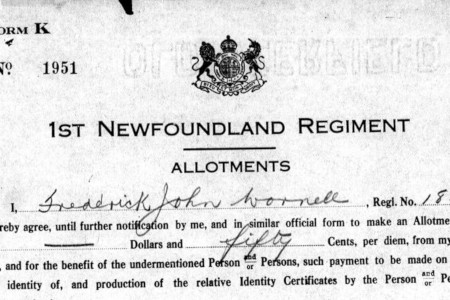 ORM K
No. 1951
1ST NEWFOUNDLAND REGIMENT
ALLOTMENTS
I, Frederick John Wornell, Regl. No. 18
reby agree, until further notification by me, and in similar official form to make an Allotme
Dollars and fifty Cents, per diem, from my
, and for the benefit of the undermentioned Person and/or Persons, such payment to be made on
identity of, and production of the relative Identity Certificates by the Person and/or Pe